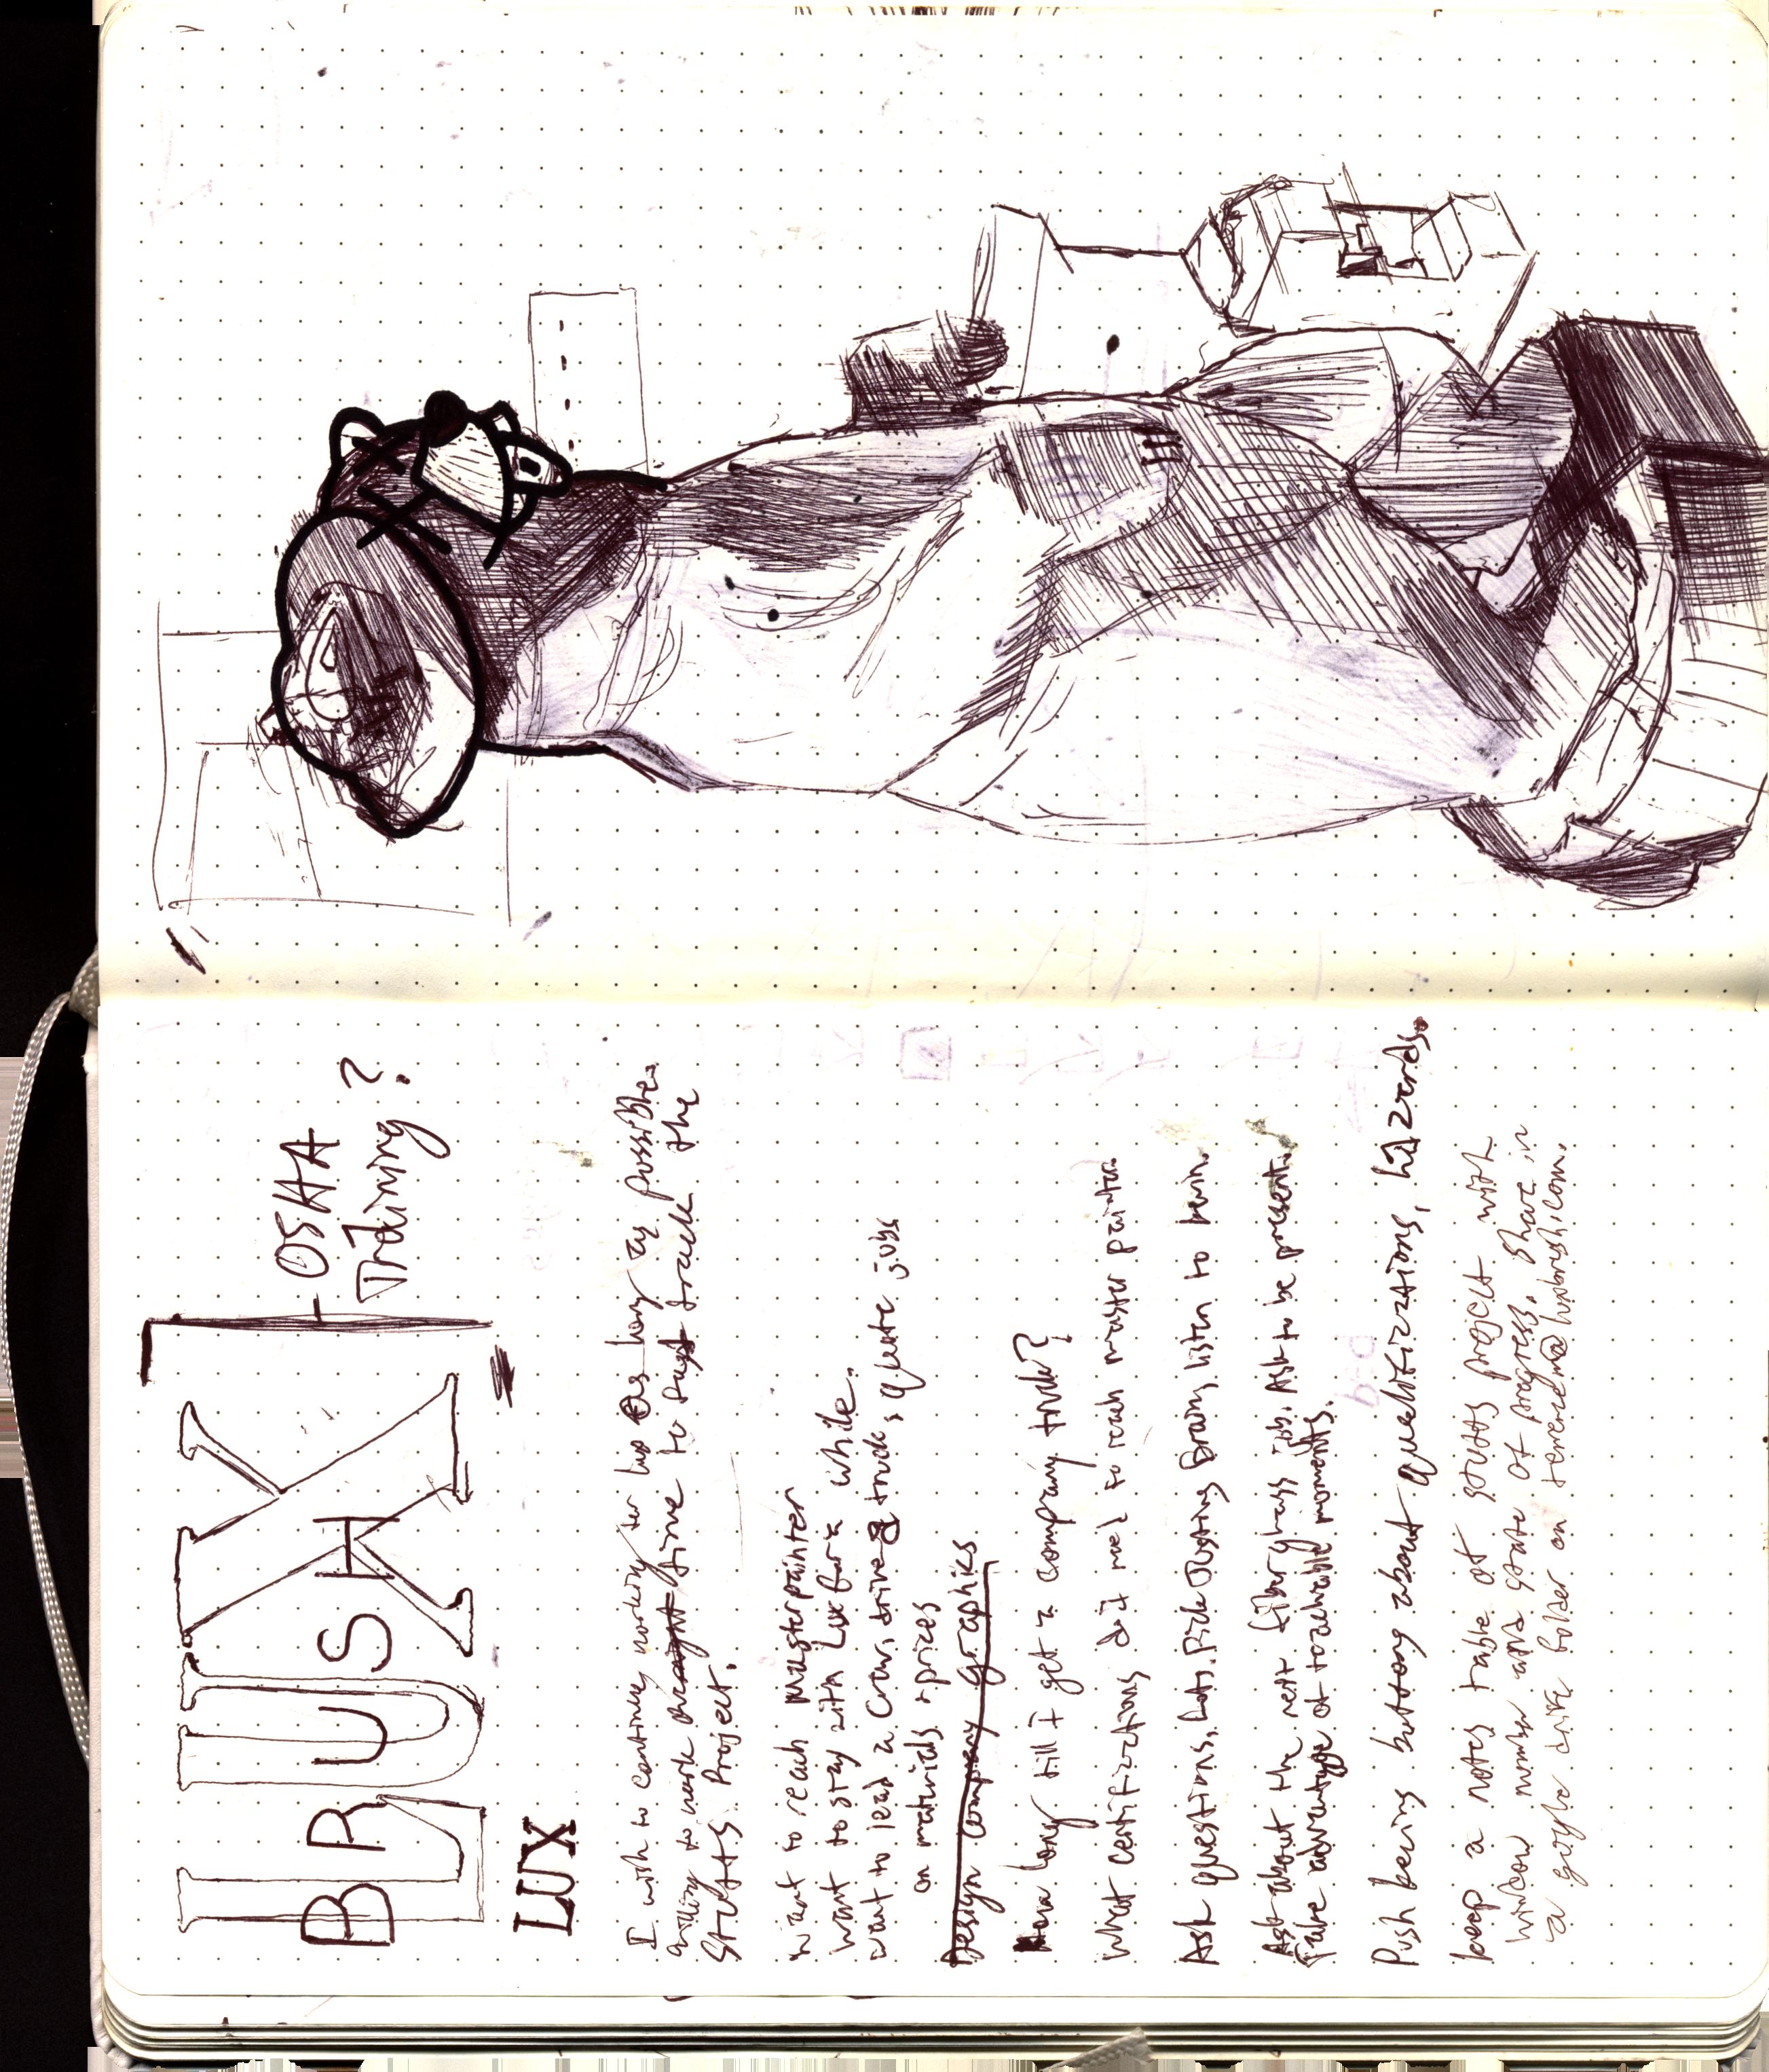 LUX
BRUSH
OSHA
Training?
LUX
I wish to continue working for lux as long as possible.
willing to work time to fast track the
Stutts Project.
want to reach master painter
want to stay with Lux for a while.
want to lead a crew, drive a truck, quote jobs
on materials + prices
Design company graphics
How long till I get a company truck?
What certifications do I need to reach master painter.
Ask questions, Lots. Pick Dustins Brain, listen to kevin.
Ask about the next fiberglass job, Ask to be present.
Take advantage of teachable moments.
Push being buttons about qualifizations, hazards.
keep a notes table of stutts project with
window number and state of progress. Share in
a google drive folder on